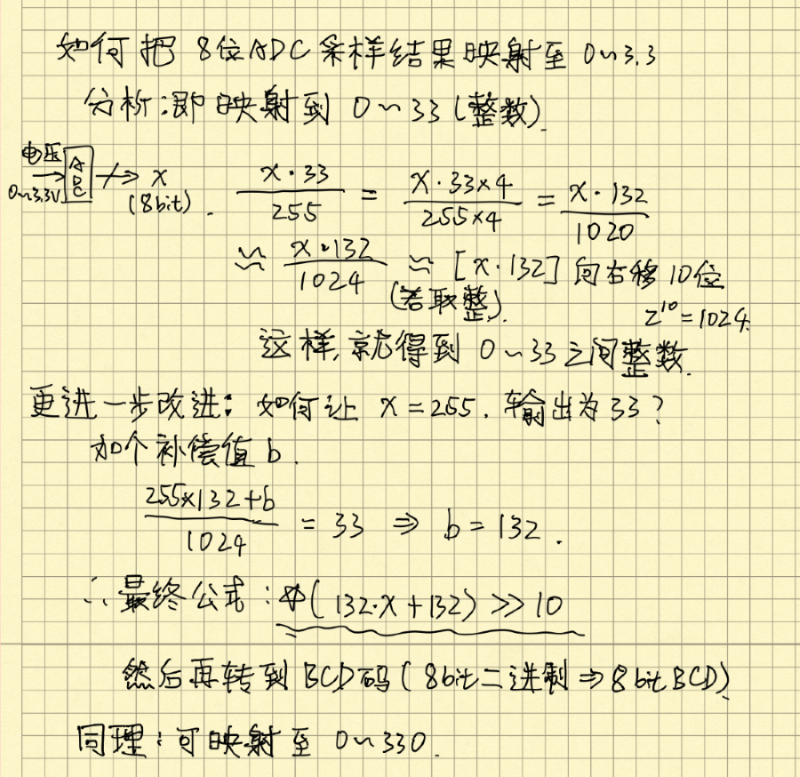 如何把 8位ADC采样结果映射至 0~3.3
分析:即映射到 0~33(整数).
电压
0~3.3V
ADC
x
(8bit).
x·33/255 = x·33×4/255×4 = x·132/1020
≈ x·132/1024 ≈ [x·132] 向右移10位
(若取整).
2^10=1024.
这样,就得到 0~33之间整数.
更进一步改进: 如何让 x=255. 输出为33?
加个补偿值 b.
255×132+b/1024 = 33 ⇒ b=132.
∴最终公式:(132·x+132)>>10
然后再转到BCD码(8bit二进制⇒8bit BCD)
同理:可映射至 0~330.